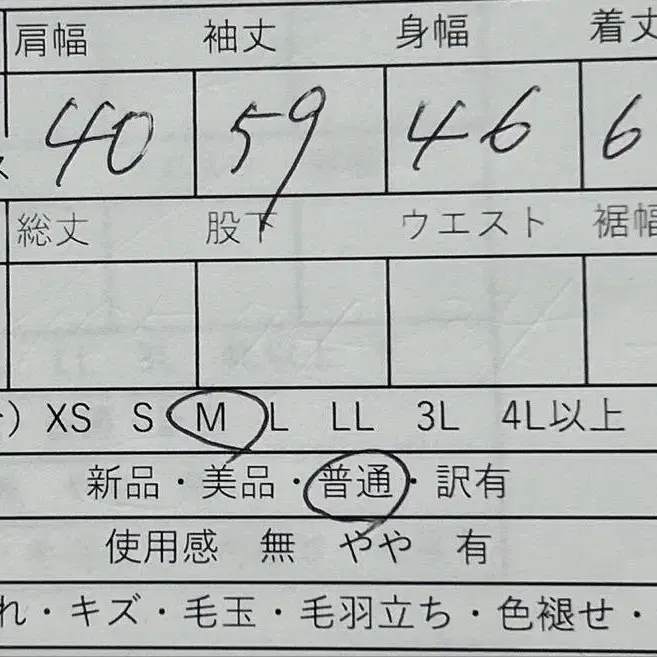 肩幅 袖丈 身幅 着丈
40 59 46 6
総丈 股下 ウエスト 裾幅
) XS S M L LL 3L 4L以上
新品・美品・普通・訳有
使用感 無 やや 有
れ・キズ・毛玉・毛羽立ち・色褪せ・